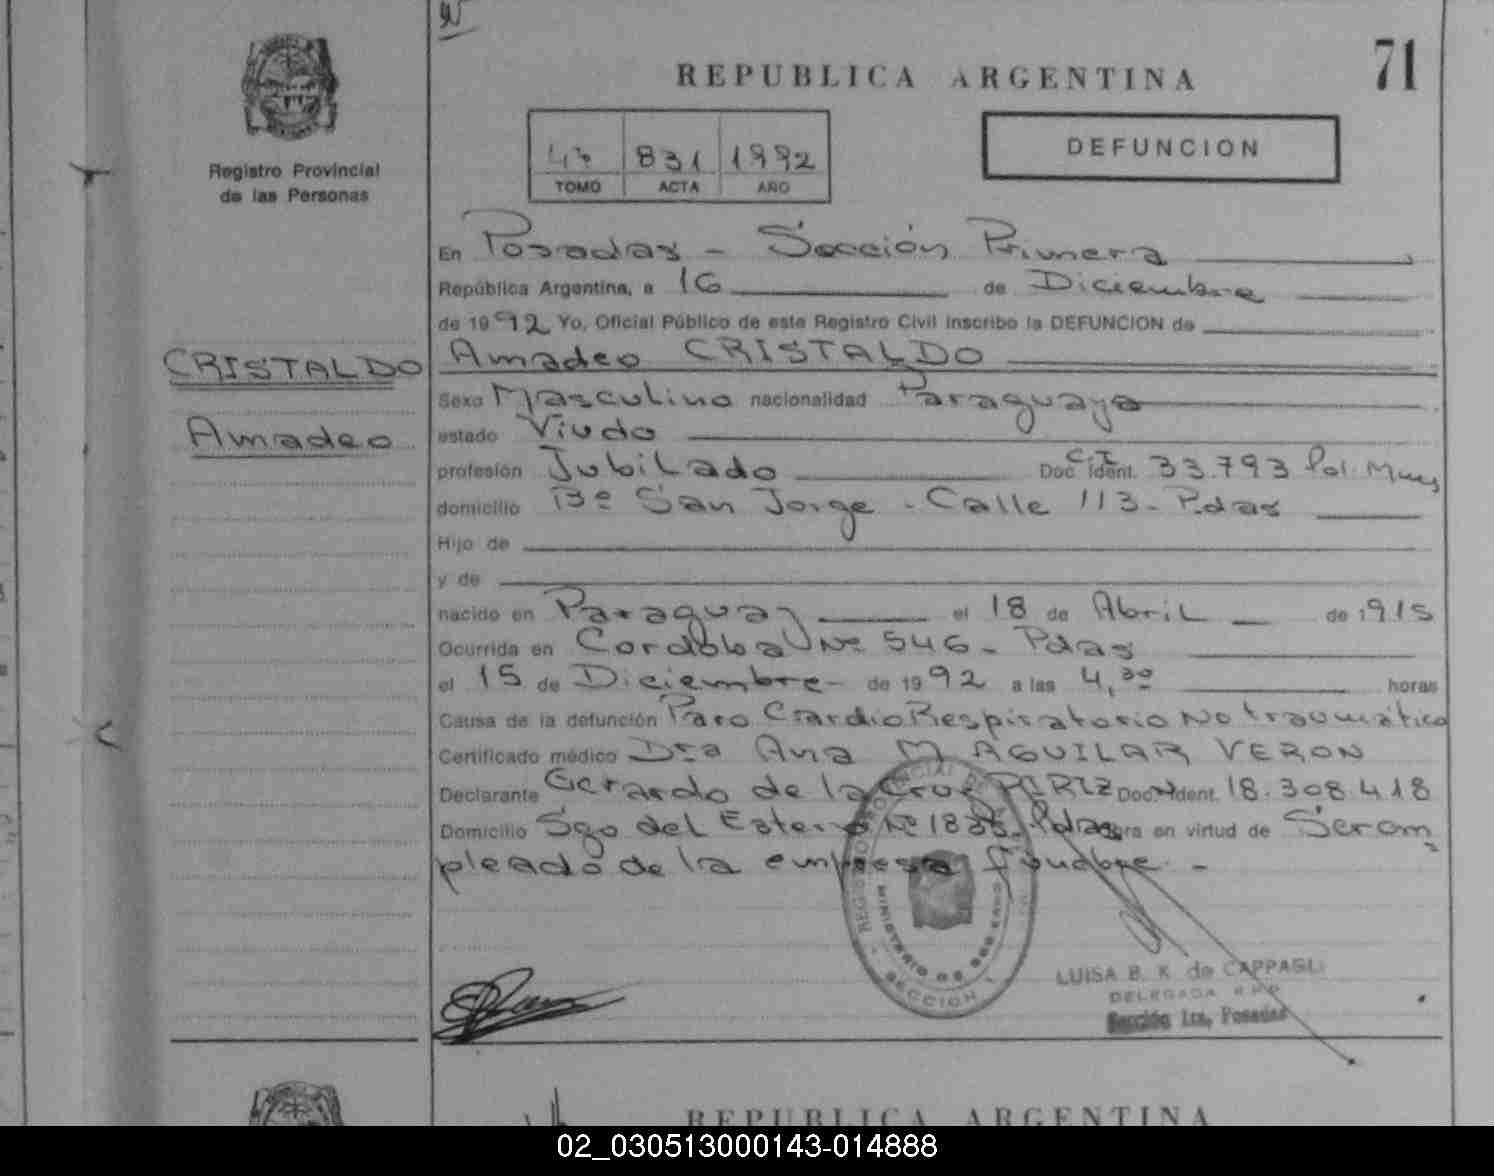 REPUBLICA ARGENTINA
71
Registro Provincial
de las Personas
831 1992
TOMO ACTA AÑO
DEFUNCION
En Posadas - Sección Primera
República Argentina, a 16 de Diciembre
de 1992 Yo, Oficial Público de este Registro Civil inscribo la DEFUNCION de
CRISTALDO
Amadeo
Amadeo CRISTALDO
Sexo Masculino nacionalidad Paraguaya
estado Viudo
profesión Jubilado Doc. Ident. C.I 33.793 Pol. Mnes
domicilio Bº San Jorge - Calle 113 - Pdas
Hijo de
y de
nacido en Paraguay el 18 de Abril de 1915
Ocurrida en Cordoba Nº 546 - Pdas
el 15 de Diciembre - de 1992 a las 4,30 horas
Causa de la defunción Paro CardioRespiratorio No traumático
Certificado médico Dra Ana M AGUILAR VERON
Declarante Gerardo de la Cruz PIRIZ Doc. Ident. 18.308.418
Domicilio Sgo del Estero Nº Pdas obra en virtud de Ser em
pleado de la empresa fúnebre. -
REGISTRO PROVINCIAL DE
MINISTERIO DE
SECCION 1
LUISA B. K. de CAPPAGLI
DELEGADA R.P.P
Sección 1ra, Posadas
REPUBLICA ARGENTINA
02_030513000143-014888